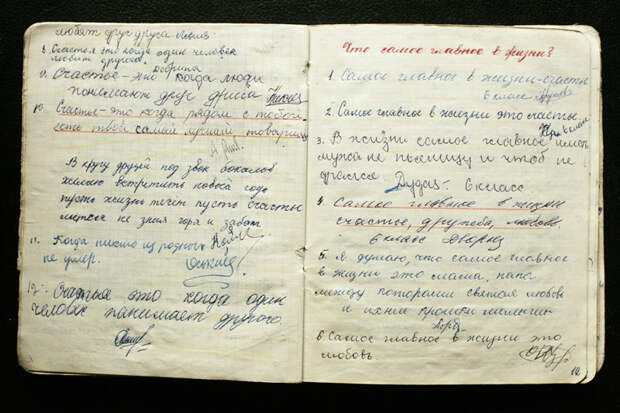 любят друг друга
8. Счастья это когда один человек
любит другого.
9. Счастье - это когда люди
понемают друг друга
10. Счастье - это когда рядом с тобой
есть твой самый лучший товарищ
В кругу друзей под звон бокалов
желаю встретить новой годе
пусть жизнь течёт пусть счастье
мчится не зная горя и забот
11. Когда письмо из родного
не умер.
12. Счастье это когда один
человек панимает другого.
Что самое главное в жизни?
1. Самое главное в жизни - счастье
6 класс
2. Самое главное в жизни это счастье
3. В жизни самое главное имет
мужа не пьеницу и чтоб не
дрался Дудаш - 6 класс
4. Самое главное в жизни
счастье, дружба, любовь
6 класс Дворяц
5. Я думаю, что самое главное
в жизни это мама, папа
между которыми святая любовь
и ихнее крошки малыши
6. Самое главное в жизни это
любовь
12